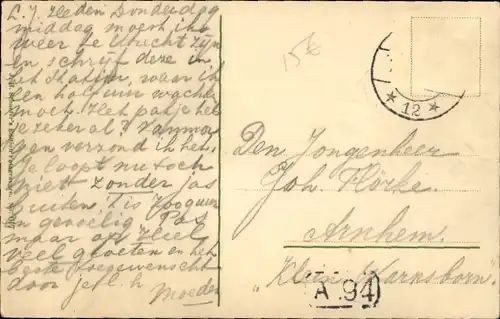 L.J. Heden Donderdag
middag moest ik
weer te Utrecht zijn
en schrijf deze in
het station, waar ik
een half uur wachten
moet. Het pakje heb
je zeker al? Vanmor
gen verzond ik het.
Je loopt nu toch
niet zonder jas
buiten. 't is
en gevoelig Pas
maar op. Heel
veel groeten en het
beste toegewenscht
door je
Moeder
15€
12
Den Jongenheer
Joh. Flörke.
Arnhem.
"Klein Warnsborn."
A 94